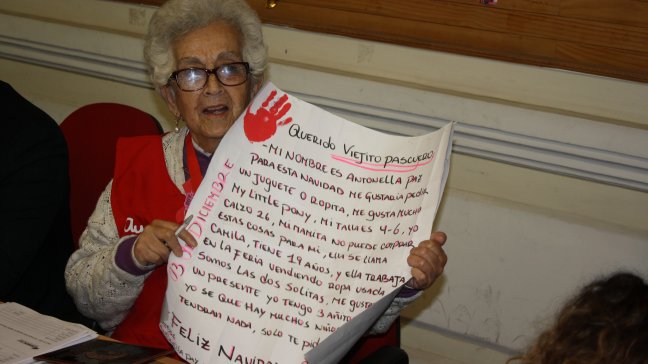 QUERIDO VIEJITO PASCUERO:
- MI NOMBRE ES ANTONELLA PAZ
PARA ESTA NAVIDAD ME GUSTARIA PEDIR
UN JUGUETE O ROPITA, ME GUSTA MUCHO
MY LITTLE PONY, MI TALLA ES 4-6, YO
CALZO 26, MI MAMITA NO PUEDE COMPRAR
ESTAS COSAS PARA MI, ELLA SE LLAMA
CAMILA, TIENE 19 AÑOS, Y ELLA TRABAJA
EN LA FERIA VENDIENDO ROPA USADA
SOMOS LAS DOS SOLITAS, ME GUSTA
UN PRESENTE YO TENGO 3 AÑITOS
YO SE QUE HAY MUCHOS NIÑOS
TENDRAN NADA, SOLO TE PID
FELIZ NAVIDA
13 DE DICIEMBRE